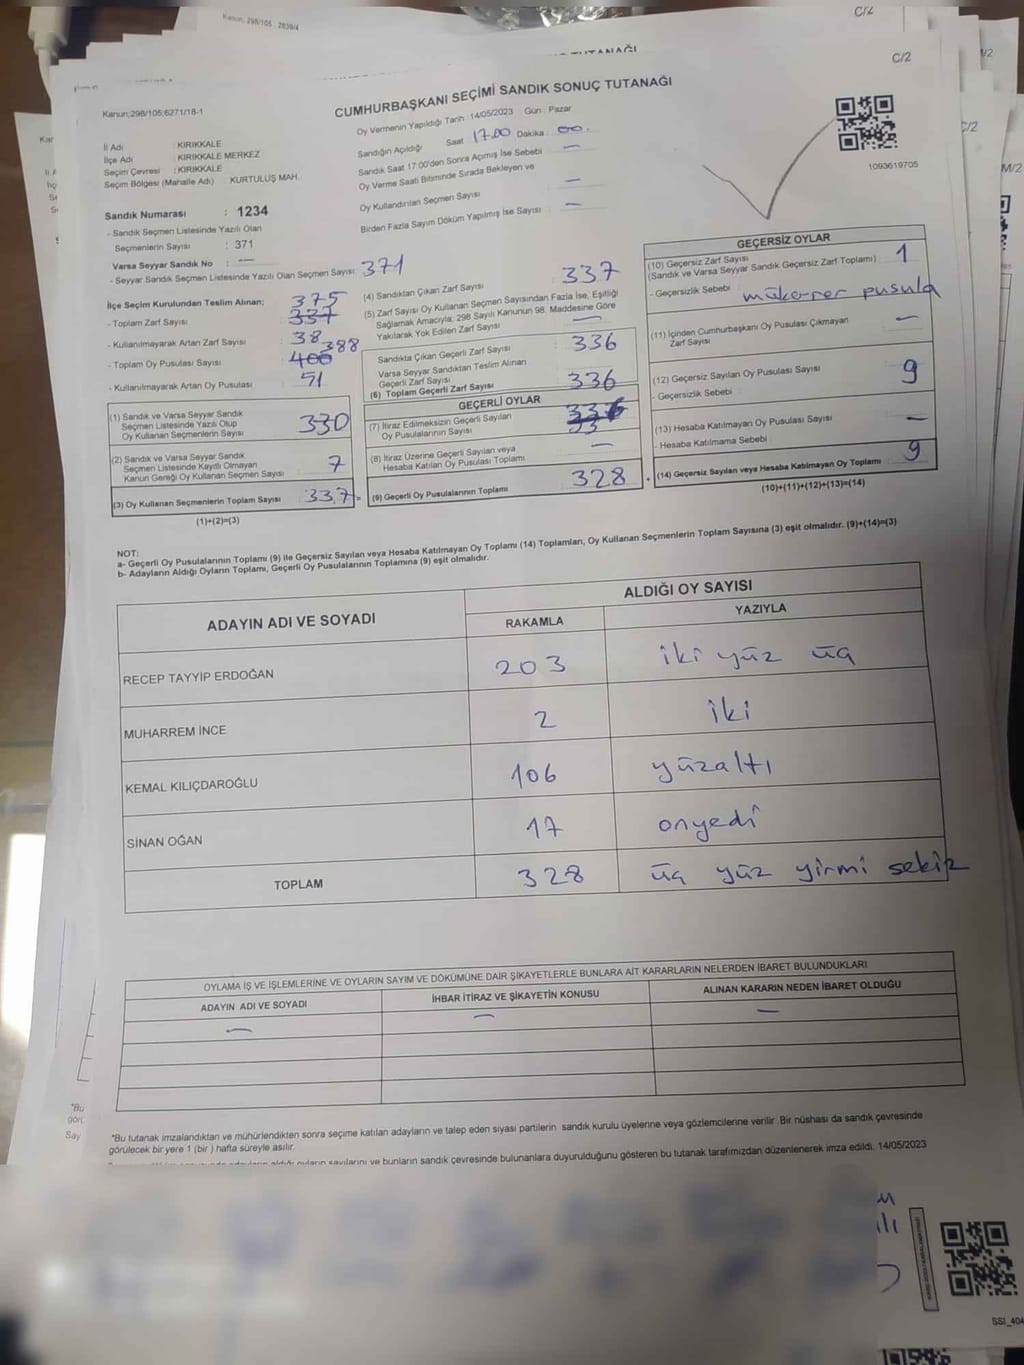 Kanun; 298/105 ; 2839/4
C/2
C/2
Kanun;298/105;6271/18-1
CUMHURBAŞKANI SEÇİMİ SANDIK SONUÇ TUTANAĞI
Oy Vermenin Yapıldığı Tarih : 14/05/2023 Gün : Pazar
İl Adı : KIRIKKALE
İlçe Adı : KIRIKKALE MERKEZ
Seçim Çevresi : KIRIKKALE
Seçim Bölgesi (Mahalle Adı) : KURTULUŞ MAH.
Sandık Numarası : 1234
- Sandık Seçmen Listesinde Yazılı Olan
Seçmenlerin Sayısı : 371
Varsa Seyyar Sandık No : —
- Seyyar Sandık Seçmen Listesinde Yazılı Olan Seçmen Sayısı: 371
Sandığın Açıldığı Saat 17.00 Dakika : 00.
Sandık Saat 17:00'den Sonra Açılmış İse Sebebi —
Oy Verme Saati Bitiminde Sırada Bekleyen ve
Oy Kullandırılan Seçmen Sayısı —
Birden Fazla Sayım Döküm Yapılmış İse Sayısı : —
1093619705
İlçe Seçim Kurulundan Teslim Alınan; 375
- Toplam Zarf Sayısı : 337
- Kullanılmayarak Artan Zarf Sayısı : 38
- Toplam Oy Pusulası Sayısı : 400 388
- Kullanılmayarak Artan Oy Pusulası : 51
(1) Sandık ve Varsa Seyyar Sandık
Seçmen Listesinde Yazılı Olup
Oy Kullanan Seçmenlerin Sayısı : 330
(2) Sandık ve Varsa Seyyar Sandık
Seçmen Listesinde Kayıtlı Olmayan
Kanun Gereği Oy Kullanan Seçmen Sayısı : 7
(3) Oy Kullanan Seçmenlerin Toplam Sayısı : 337 =
(1)+(2)=(3)
(4) Sandıktan Çıkan Zarf Sayısı 337
(5) Zarf Sayısı Oy Kullanan Seçmen Sayısından Fazla İse, Eşitliği
Sağlamak Amacıyla; 298 Sayılı Kanunun 98. Maddesine Göre
Yakılarak Yok Edilen Zarf Sayısı —
Sandıkta Çıkan Geçerli Zarf Sayısı : 336
Varsa Seyyar Sandıktan Teslim Alınan
Geçerli Zarf Sayısı
(6) Toplam Geçerli Zarf Sayısı 336
GEÇERLİ OYLAR
(7) İtiraz Edilmeksizin Geçerli Sayılan
Oy Pusulalarının Sayısı
(8) İtiraz Üzerine Geçerli Sayılan veya
Hesaba Katılan Oy Pusulası Toplamı —
(9) Geçerli Oy Pusulalarının Toplamı : 328 +
GEÇERSİZ OYLAR
(10) Geçersiz Zarf Sayısı
(Sandık ve Varsa Seyyar Sandık Geçersiz Zarf Toplamı) : 1
- Geçersizlik Sebebi : mükerrer pusula
(11) İçinden Cumhurbaşkanı Oy Pusulası Çıkmayan
Zarf Sayısı —
(12) Geçersiz Sayılan Oy Pusulası Sayısı : 9
- Geçersizlik Sebebi :
(13) Hesaba Katılmayan Oy Pusulası Sayısı : —
- Hesaba Katılmama Sebebi :
(14) Geçersiz Sayılan veya Hesaba Katılmayan Oy Toplamı : 9
(10)+(11)+(12)+(13)=(14)
NOT:
a- Geçerli Oy Pusulalarının Toplamı (9) ile Geçersiz Sayılan veya Hesaba Katılmayan Oy Toplamı (14) Toplamları, Oy Kullanan Seçmenlerin Toplam Sayısına (3) eşit olmalıdır. (9)+(14)=(3)
b- Adayların Aldığı Oyların Toplamı, Geçerli Oy Pusulalarının Toplamına (9) eşit olmalıdır.
ADAYIN ADI VE SOYADI
ALDIĞI OY SAYISI
RAKAMLA YAZIYLA
RECEP TAYYİP ERDOĞAN 203 iki yüz üç
MUHARREM İNCE 2 iki
KEMAL KILIÇDAROĞLU 106 yüzaltı
SİNAN OĞAN 17 onyedi
TOPLAM 328 üç yüz yirmi sekiz
OYLAMA İŞ VE İŞLEMLERİNE VE OYLARIN SAYIM VE DÖKÜMÜNE DAİR ŞİKAYETLERLE BUNLARA AİT KARARLARIN NELERDEN İBARET BULUNDUKLARI
ADAYIN ADI VE SOYADI İHBAR İTİRAZ VE ŞİKAYETİN KONUSU ALINAN KARARIN NEDEN İBARET OLDUĞU
— — —
*Bu tutanak imzalandıktan ve mühürlendikten sonra seçime katılan adayların ve talep eden siyasi partilerin sandık kurulu üyelerine veya gözlemcilerine verilir. Bir nüshası da sandık çevresinde
görülecek bir yere 1 (bir ) hafta süreyle asılır.
aldığı oyların sayılarını ve bunların sandık çevresinde bulunanlara duyurulduğunu gösteren bu tutanak tarafımızdan düzenlenerek imza edildi. 14/05/2023
SSİ_404